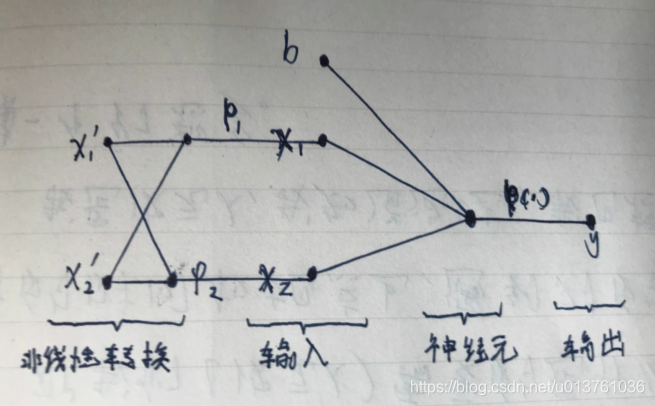 b
x₁'
φ₁
x₁
φ(·)
y
x₂'
φ₂
x₂
非线性转换
输入
神经元
输出
https://blog.csdn.net/u013761036